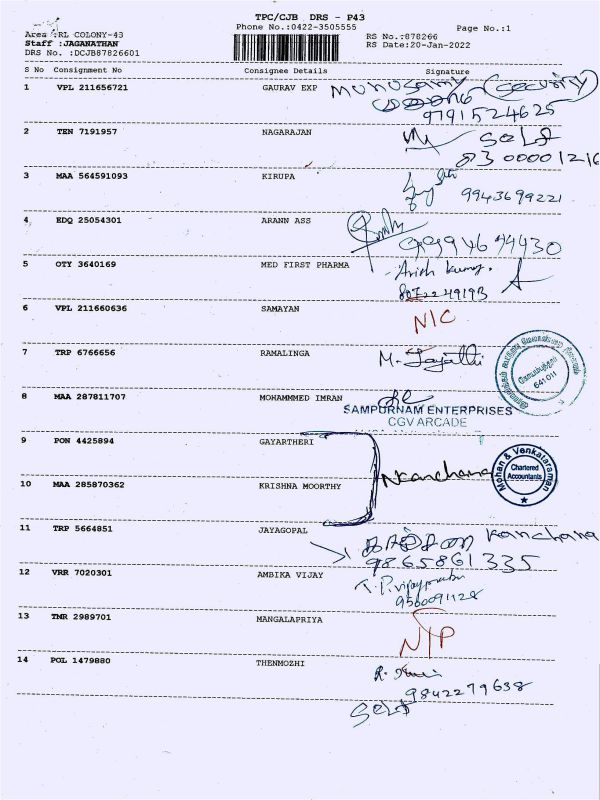 TPC/CJB DRS - P43
Phone No.:0422-3505555
Page No.:1
Area :RL COLONY-43
RS No.:878266
Staff :JAGANATHAN
RS Date:20-Jan-2022
DRS No. :DCJB87826601
S No Consignment No Consignee Details Signature
1 VPL 211656721 GAURAV EXP Munusamy (Security)
9791524625
2 TEN 7191957 NAGARAJAN Self
3 MAA 564591093 KIRUPA 9943699221
4 EDQ 25054301 ARANN ASS
5 OTY 3640169 MED FIRST PHARMA
6 VPL 211660636 SAMAYAN N/C
7 TRP 6766656 RAMALINGA M.
641 011
8 MAA 287811707 MOHAMMMED IMRAN
SAMPURNAM ENTERPRISES
CGV ARCADE
9 PON 4425894 GAYARTHERI
Mohan & Venkataraman
Chartered
Accountants
10 MAA 285870362 KRISHNA MOORTHY
11 TRP 5664851 JAYAGOPAL Kanchana
9865861335
12 VRR 7020301 AMBIKA VIJAY
9560091128
13 TMR 2989701 MANGALAPRIYA
14 POL 1479880 THENMOZHI
9842279638
Self